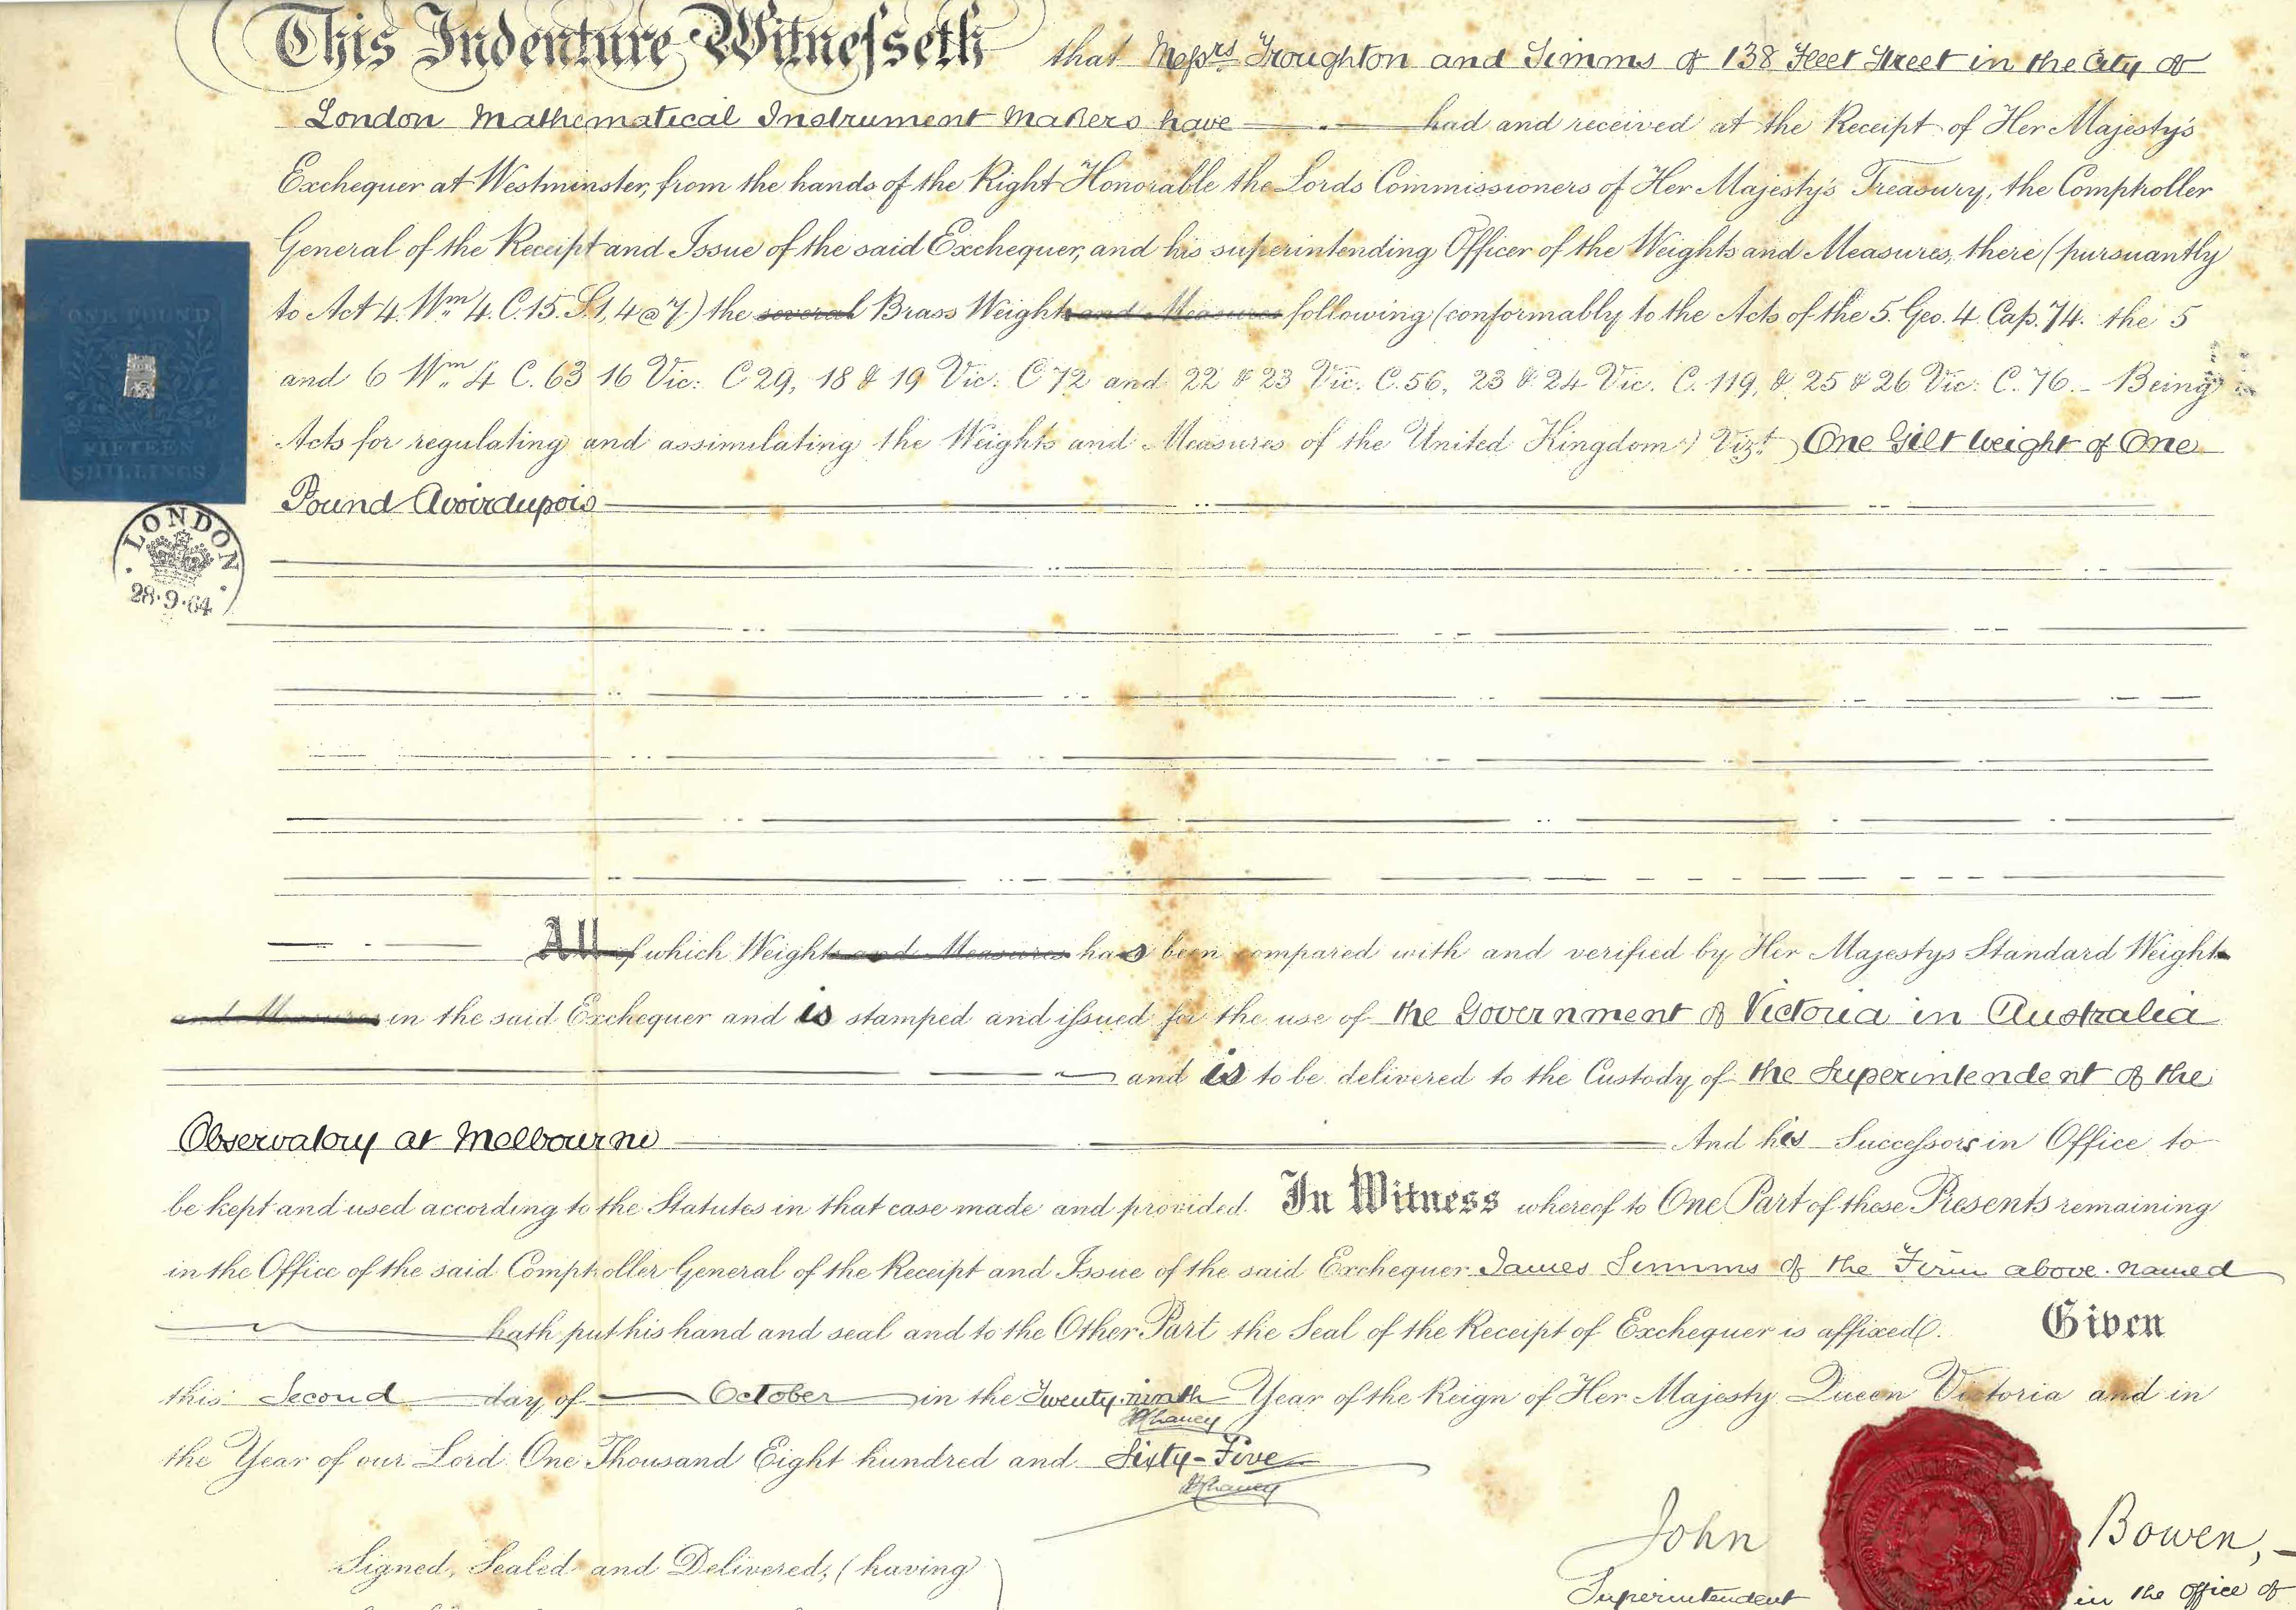 This Indenture Witnesseth that Messrs Troughton and Simms of 138 Fleet Street in the City of
London Mathematical Instrument Makers have had and received at the Receipt of Her Majesty's
Exchequer at Westminster, from the hands of the Right Honorable the Lords Commissioners of Her Majesty's Treasury, the Comptroller
General of the Receipt and Issue of the said Exchequer, and his superintending Officer of the Weights and Measures, there (pursuantly
to Act 4. Wm 4. C. 15. S. 1, 4 @ 7.) the several Brass Weights and Measures following (conformably to the Acts of the 5. Geo. 4. Cap. 74. the 5
and 6 Wm 4 C. 63 16 Vic: C 29, 18 & 19 Vic: C 72 and 22 & 23 Vic. C. 56, 23 & 24 Vic. C. 119, & 25 & 26 Vic: C. 76. - Being
Acts for regulating and assimilating the Weights and Measures of the United Kingdom) Vizt. One Gilt weight of One
Pound Avoirdupois
ONE POUND
FIFTEEN
SHILLINGS
LONDON
28·9·64
All of which Weights and Measures has been compared with and verified by Her Majestys Standard Weights
and Measures in the said Exchequer and is stamped and issued for the use of the Government of Victoria in Australia
and is to be delivered to the Custody of the Superintendent of the
Observatory at Melbourne And his Successors in Office to
be kept and used according to the Statutes in that case made and provided. In Witness whereof to One Part of these Presents remaining
in the Office of the said Comptroller General of the Receipt and Issue of the said Exchequer James Simms of the Firm above named
hath put his hand and seal and to the Other Part the Seal of the Receipt of Exchequer is affixed. Given
this Second day of October in the Twenty-ninth Year of the Reign of Her Majesty Queen Victoria and in
HChaney
the Year of our Lord One Thousand Eight hundred and Sixty-Five
HChaney
John Bowen,
Signed, Sealed and Delivered, (having
Superintendent in the Office of